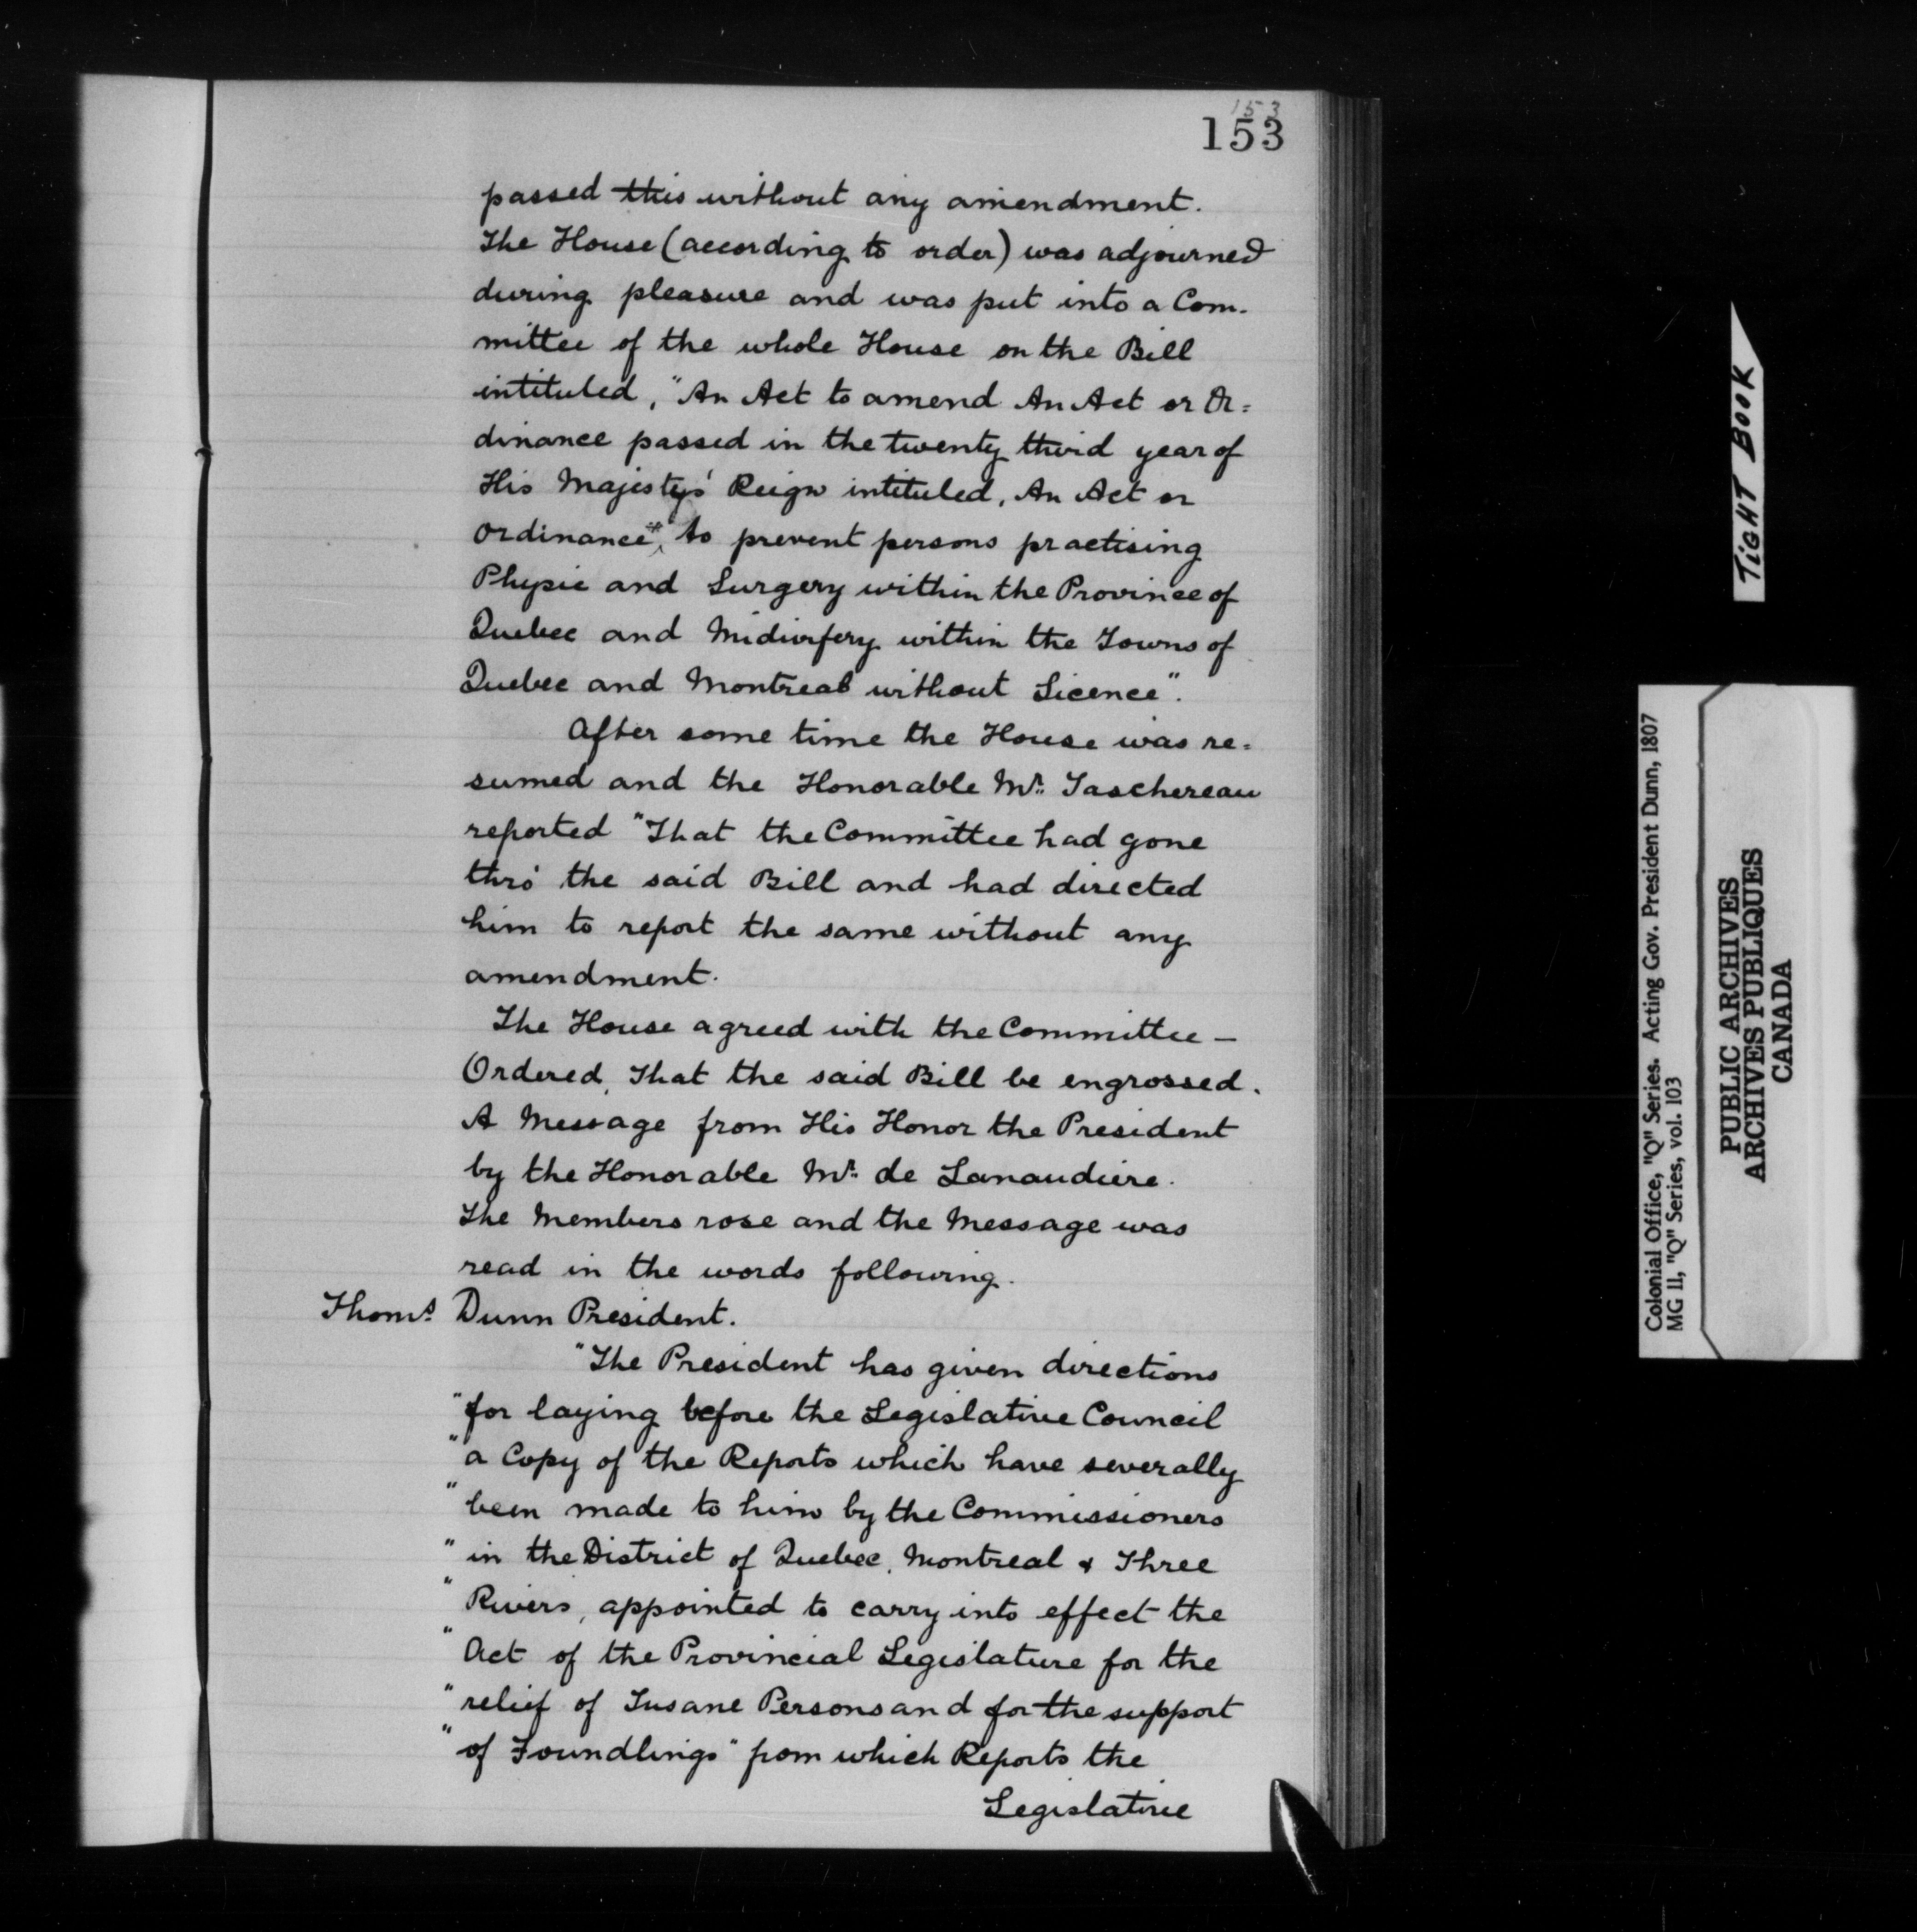 153
153
passed this without any amendment.
The House (according to order) was adjourned
during pleasure and was put into a Com-
mittee of the whole House on the Bill
intituled, "An Act to amend An Act or Or=
dinance passed in the twenty third year of
His Majestys' Reign intituled, An Act or
Ordinance", to prevent persons practising
Physic and Surgery within the Province of
Quebec and Midwifery within the Towns of
Quebec and Montreal without Licence".
After some time the House was re=
sumed and the Honorable Mr. Taschereau
reported "That the Committee had gone
thro' the said Bill and had directed
him to report the same without any
amendment.
The House agreed with the Committee —
Ordered, That the said Bill be engrossed.
A Message from His Honor the President
by the Honorable Mr. de Lanaudiere.
The Members rose and the Message was
read in the words following.
Thoms. Dunn President.
"The President has given directions
"for laying before the Legislative Council
"a Copy of the Reports which have severally
"been made to him by the Commissioners
"in the District of Quebec, Montreal & Three
"Rivers, appointed to carry into effect the
"Act of the Provincial Legislature for the
"relief of Insane Persons and for the support
"of Foundlings" from which Reports the
Legislative
TIGHT BOOK
Colonial Office, "Q" Series. Acting Gov. President Dunn, 1807
MG 11, "Q" Series, vol. 103
PUBLIC ARCHIVES
ARCHIVES PUBLIQUES
CANADA